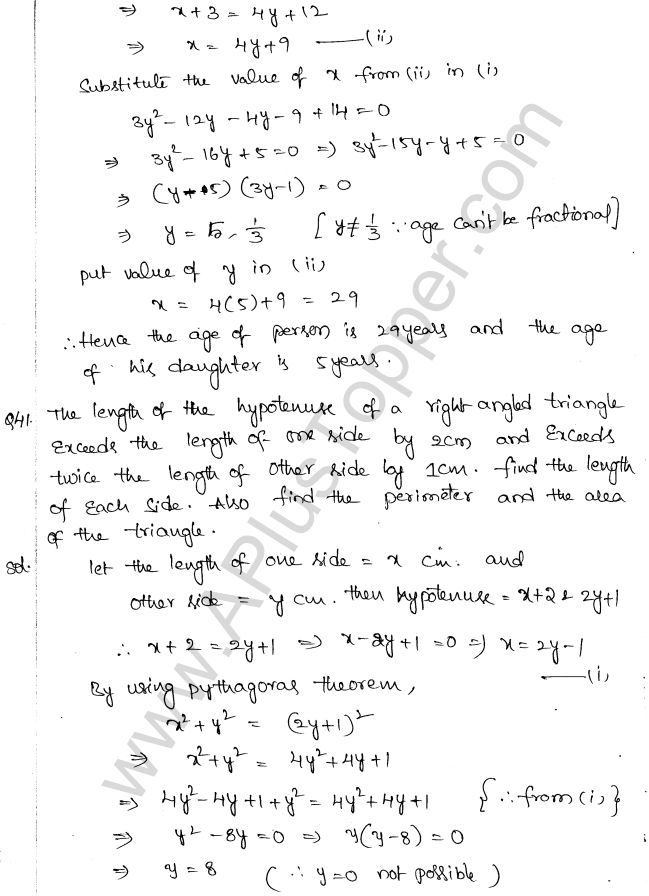 ⇒ x+3 = 4y+12
⇒ x = 4y+9 ——(ii)
Substitute the value of x from (ii) in (i)
3y²-12y-4y-9+14=0
⇒ 3y²-16y+5=0 ⇒ 3y²-15y-y+5=0
⇒ (y-5) (3y-1) = 0
⇒ y = 5, 1/3 [y≠1/3 ∵ age can't be fractional]
put value of y in (ii)
x = 4(5)+9 = 29
∴ Hence the age of person is 29 years and the age
of his daughter is 5 years.
Q41. The length of the hypotenuse of a right angled triangle
Exceeds the length of one side by 2cm and Exceeds
twice the length of other side by 1cm. find the length
of Each side. Also find the perimeter and the area
of the triangle.
Sol. let the length of one side = x cm. and
other side = y cm. then hypotenuse = x+2 & 2y+1
∴ x+2 = 2y+1 ⇒ x-2y+1=0 ⇒ x=2y-1
——(i)
By using pythagoras theorem,
x²+y² = (2y+1)²
⇒ x²+y² = 4y²+4y+1
⇒ 4y²-4y+1+y² = 4y²+4y+1 {∴ from (i)}
⇒ y²-8y=0 ⇒ y(y-8)=0
⇒ y=8 (∴ y=0 not possible)
www.APlusTopper.com